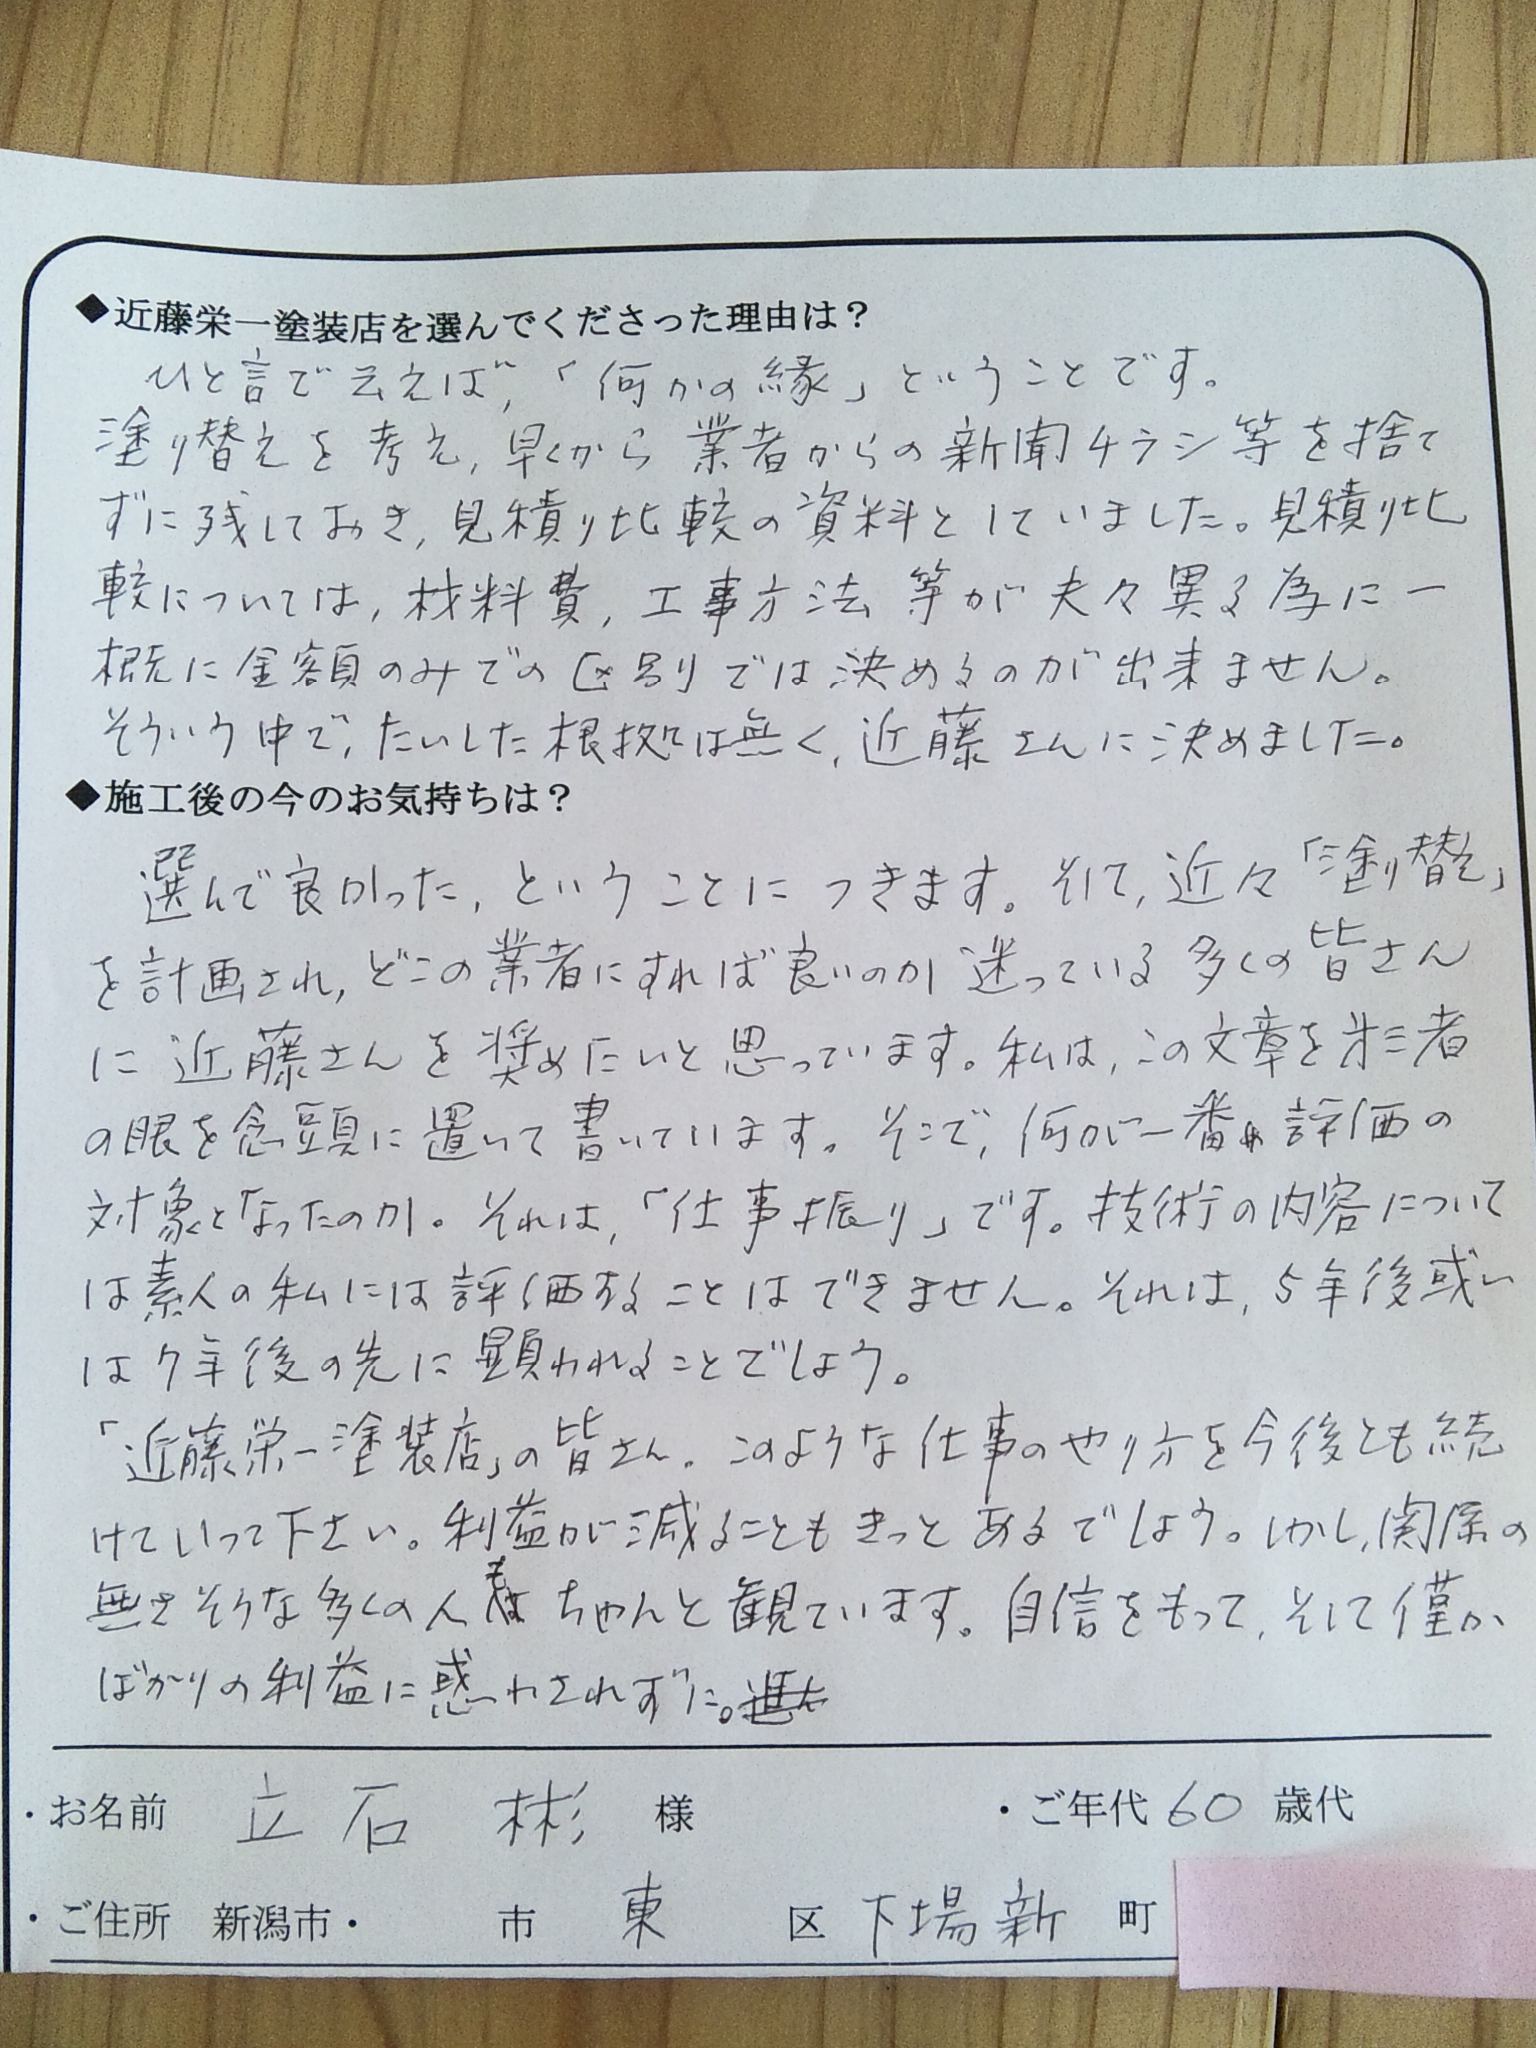 ◆近藤栄一塗装店を選んでくださった理由は？
ひと言で云えば,「何かの縁」ということです。
塗り替えを考え,早くから業者からの新聞チラシ等を捨て
ずに残しておき,見積り比較の資料としていました。見積り比
較については,材料費,工事方法等が夫々異る為に一
概に金額のみでの区別では決めるのが出来ません。
そういう中で,たいした根拠は無く,近藤さんに決めました。
◆施工後の今のお気持ちは？
選んで良かった,ということにつきます。そして,近々「塗り替え」
を計画され,どこの業者にすれば良いのか迷っている多くの皆さん
に近藤さんを奨めたいと思っています。私は,この文章を第三者
の眼を念頭に置いて書いています。そこで,何が一番評価の
対象となったのか。それは,「仕事振り」です。技術の内容について
は素人の私には評価することはできません。それは,5年後或い
は7年後の先に顕われることでしょう。
「近藤栄一塗装店」の皆さん.このような仕事のやり方を今後とも続
けていって下さい。利益が減ることもきっとあるでしょう。しかし,関係の
無さそうな多くの人もちゃんと観ています。自信をもって,そして僅か
ばかりの利益に惑わされずに。
・お名前 立石 彬 様 ・ご年代 60 歳代
・ご住所 新潟市・ 市 東 区 下場新 町